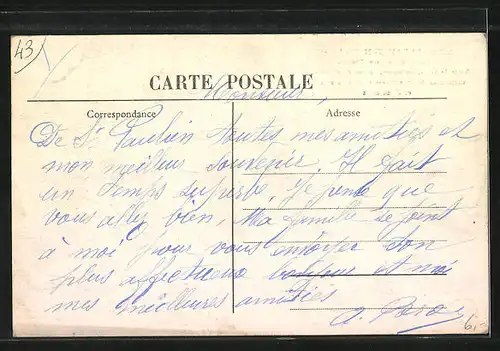 43
CARTE POSTALE
Monsieur,
Correspondance
Adresse
De St Paulien toutes mes amitiés et
mon meilleur souvenir, Il fait
un temps superbe, Je pense que
vous allez bien, Ma famille se joint
à moi pour vous envoyer son
plus affectueux bonjour et moi
mes meilleures amitiés
6,-